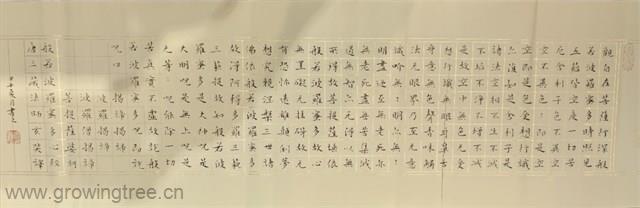 觀自在菩薩行深般
若波羅蜜多時照見
五蘊皆空度一切苦
厄舍利子色不異空
空不異色色即是空
空即是色受想行識
亦復如是舍利子是
諸法空相不生不滅
不垢不淨不增不減
是故空中無色无受
想行識無眼耳鼻舌
身意無色聲香味觸
法无眼界乃至无意
識界無無明亦無無
明盡乃至无老死亦
無老死盡無苦集滅
道無智亦无得以無
所得故菩提薩埵依
般若波羅蜜多故心
無罣礙无罣礙故无
有恐怖遠離顛倒夢
想究竟涅槃三世諸
佛依般若波羅蜜多
故得阿耨多羅三藐
三菩提故知般若波
羅蜜多是大神呪是
大明呪是无上呪是
无等等呪能除一切
苦真實不虛故說般
若波羅蜜多呪即說
呪曰 揭諦揭諦
波羅揭諦
波羅僧揭諦
菩提薩婆訶
般若波羅蜜多心經
唐三藏法師玄奘譯
月書之
www.growingtree.cn
www.growingtree.cn